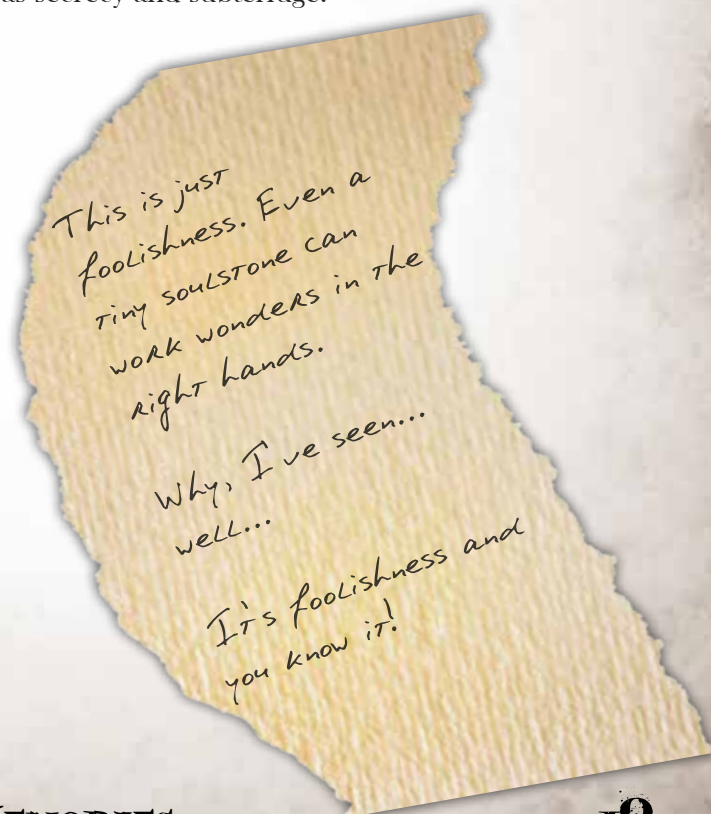 as secrecy and subterfuge.
This is just
foolishness. Even a
tiny soulstone can
work wonders in the
right hands.
Why, I've seen...
well...
It's foolishness and
you know it!